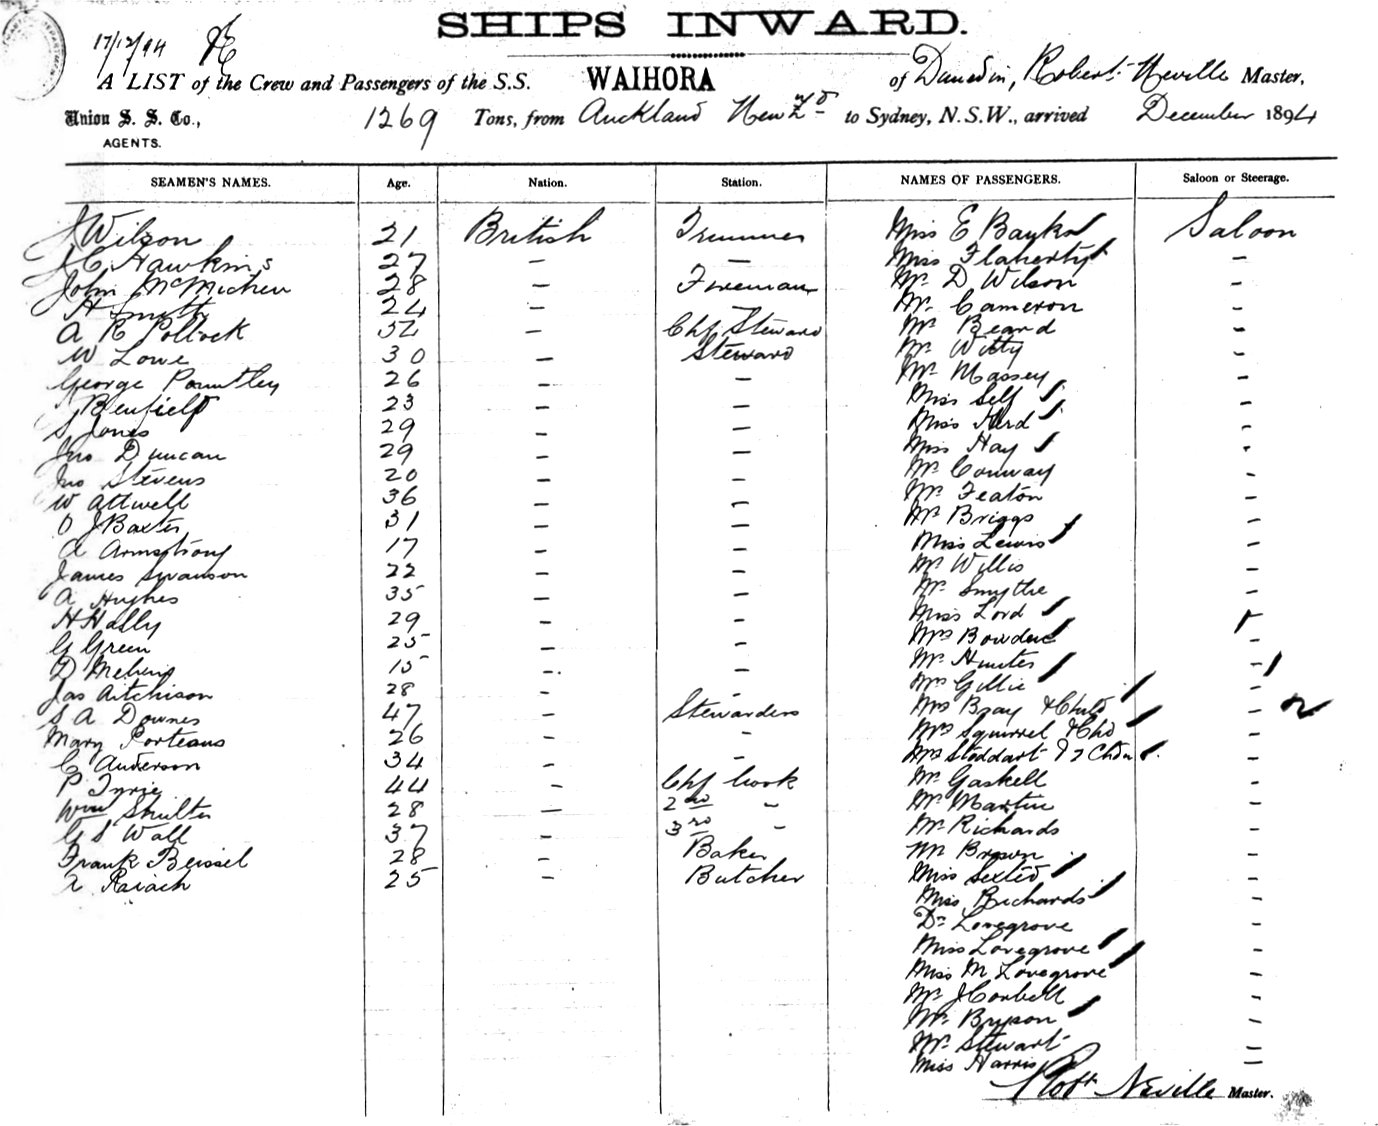 SHIPS INWARD.
17/12/94
A LIST of the Crew and Passengers of the S.S. WAIHORA of Dunedin, Robert Neville Master,
Union S. S. Co., 1269 Tons, from Auckland New Zd to Sydney, N.S.W., arrived December 1894
AGENTS.
SEAMEN'S NAMES. Age. Nation. Station. NAMES OF PASSENGERS. Saloon or Steerage.
J Wilson 21 British Trimmer Miss E Bayks Saloon
J C Hawkins 27 — — Miss Flaherty —
John McMichen 28 — Fireman Mr D Wilson —
H Smith 24 — — Mr Cameron —
A R Pollock 52 — Chf Steward Mr Beard —
W Lowe 30 — Steward Mr Witty —
George Pountley 26 — — Mr Massey —
Benfield 23 — — Miss Self —
S Jones 29 — — Miss Herd —
Jno Duncan 29 — — Miss Hay —
Jno Stevens 20 — — Mr Conway —
W Attwell 36 — — Mr Featon —
O J Baxter 31 — — Mr Briggs —
A Armstrong 17 — — Miss Lewis —
James Swanson 22 — — Mr Willis —
A Hughes 35 — — Mr Smythe —
H Hally 29 — — Miss Lord
G Green 25 — — Mrs Bowden —
D Melvin 15 — — Mr Hunter —
Jas Aitchison 28 — — Mrs Gillie —
S A Downes 47 — Stewardess Mrs Bray & Child —
Mary Porteous 26 — — Mrs Squirrel & Chd —
C Anderson 34 — — Mrs Stoddart & 2 Chdn —
P Tyrie 44 — Chf Cook Mr Gaskell —
Wm Shulter 28 — 2nd — Mr Martin —
G S Wall 37 — 3rd — Mr Richards —
Frank Beissel 28 — Baker Mr Brown —
A Raiach 25 — Butcher Miss Sexted —
Miss Richards —
Dr Lovegrove —
Miss Lovegrove —
Miss M Lovegrove —
Mr J Corbett —
Mr Bryson —
Mr Stewart —
Miss Harris —
Robt Neville Master.